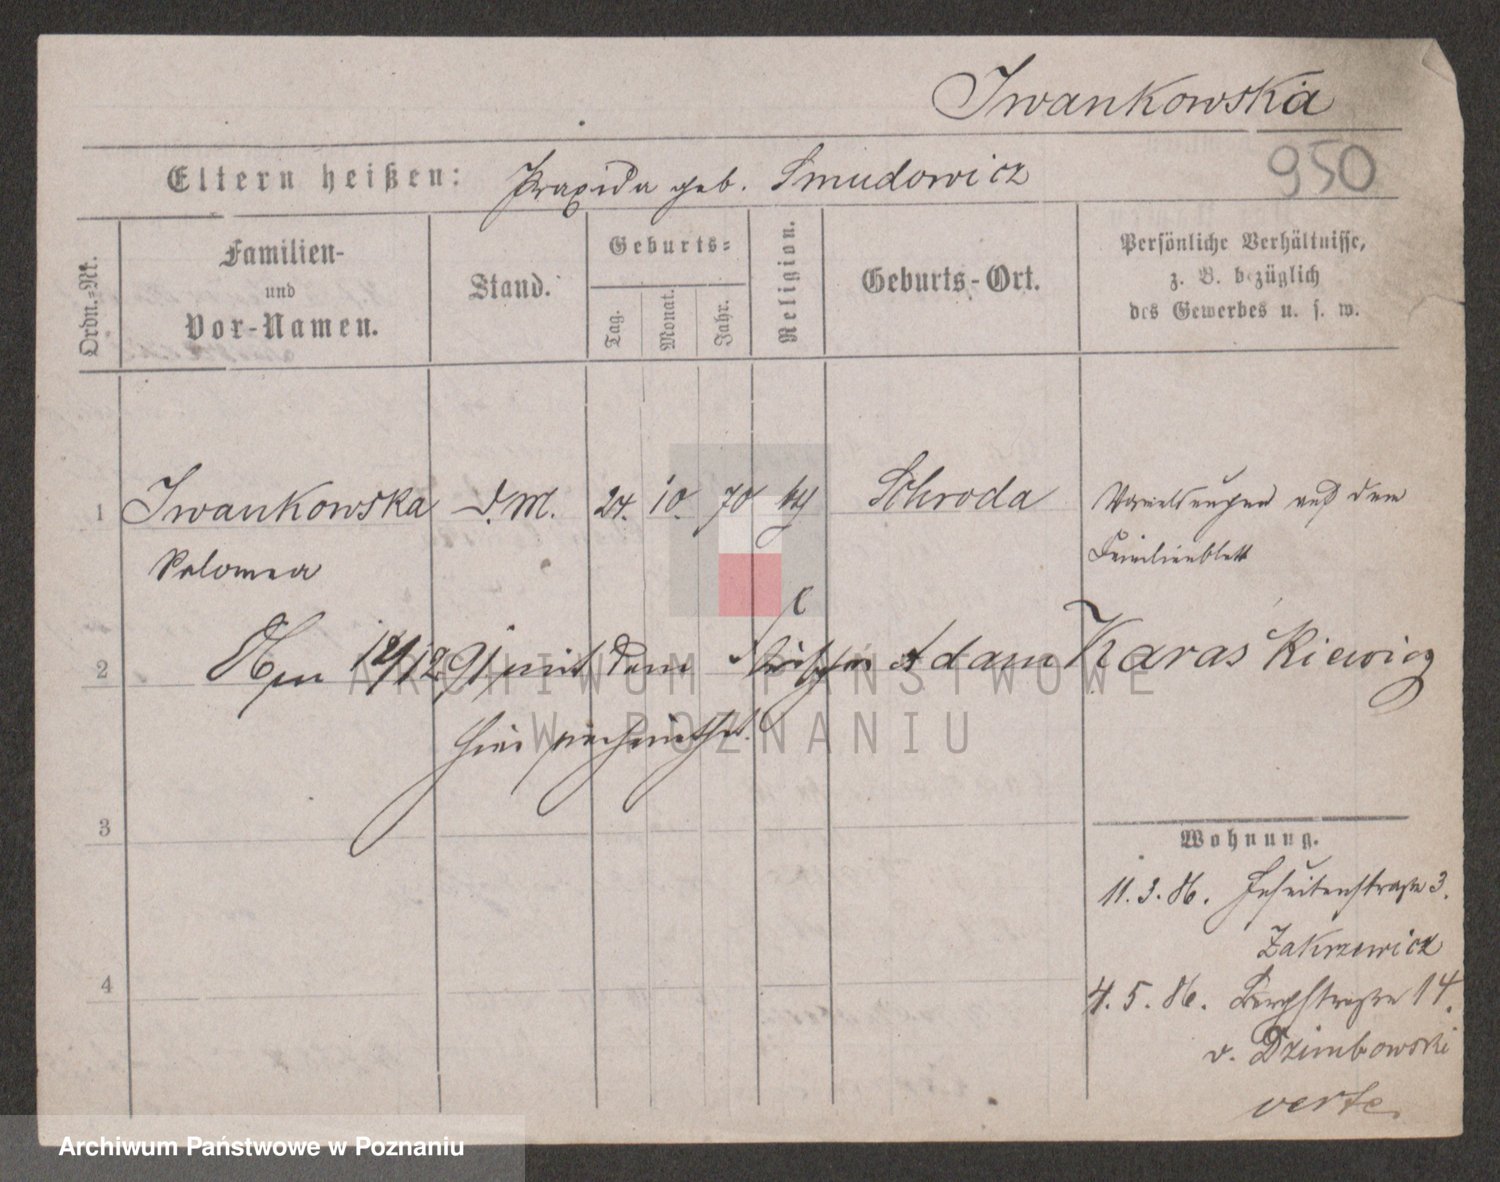 Iwankowska
950
Eltern heißen: Praxida geb. Smudowicz
Ordn.=Nr.
Familien-
und
Vor-Namen.
Stand.
Geburts=
Tag.
Monat.
Jahr.
Religion.
Geburts-Ort.
Persönliche Verhältnisse,
z. B. bezüglich
des Gewerbes u. s. w.
1 Iwankowska D.M. 24. 10. 70 kth Schroda
auf dem
Salomea Familienblatt
2 Am 12/12 91 mit dem Adam Karaśkiewicz
hier
3
Wohnung.
11. 3. 86. Jesuitenstraße 3.
Zakrzewicz
4
4. 5. 86. Bergstraße 14.
v. Dziembowski
verte.
ARCHIWUM PAŃSTWOWE
W POZNANIU
Archiwum Państwowe w Poznaniu